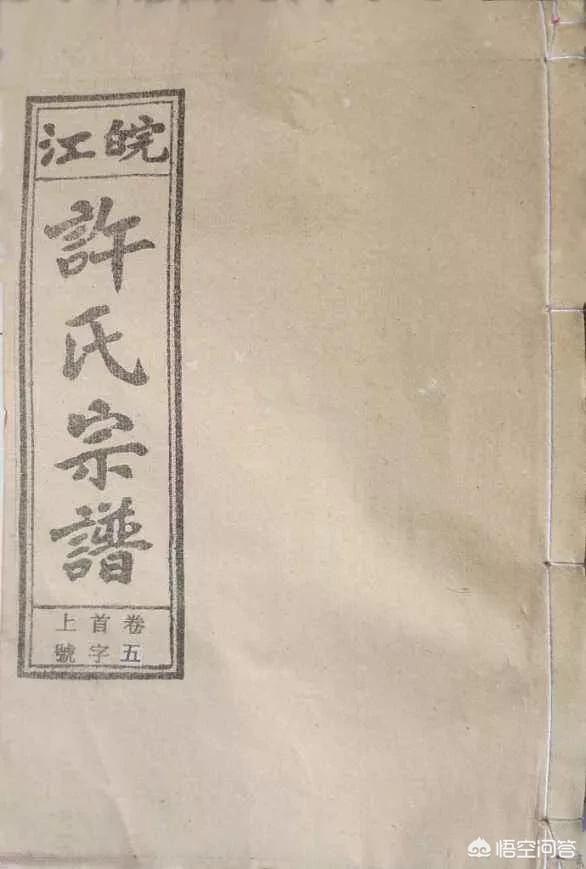 皖江
許氏宗譜
卷首上
五字號
悟空问答